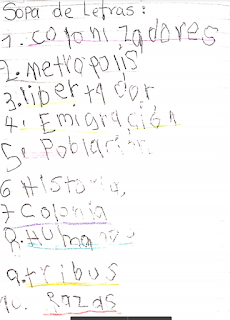 Sopa de Letras:
1. colonizadores
2. metropolis
3. libertador
4. Emigración
5. Población
6 Historia,
7 Colonia
8. Humano
9. tribus
10. Razas